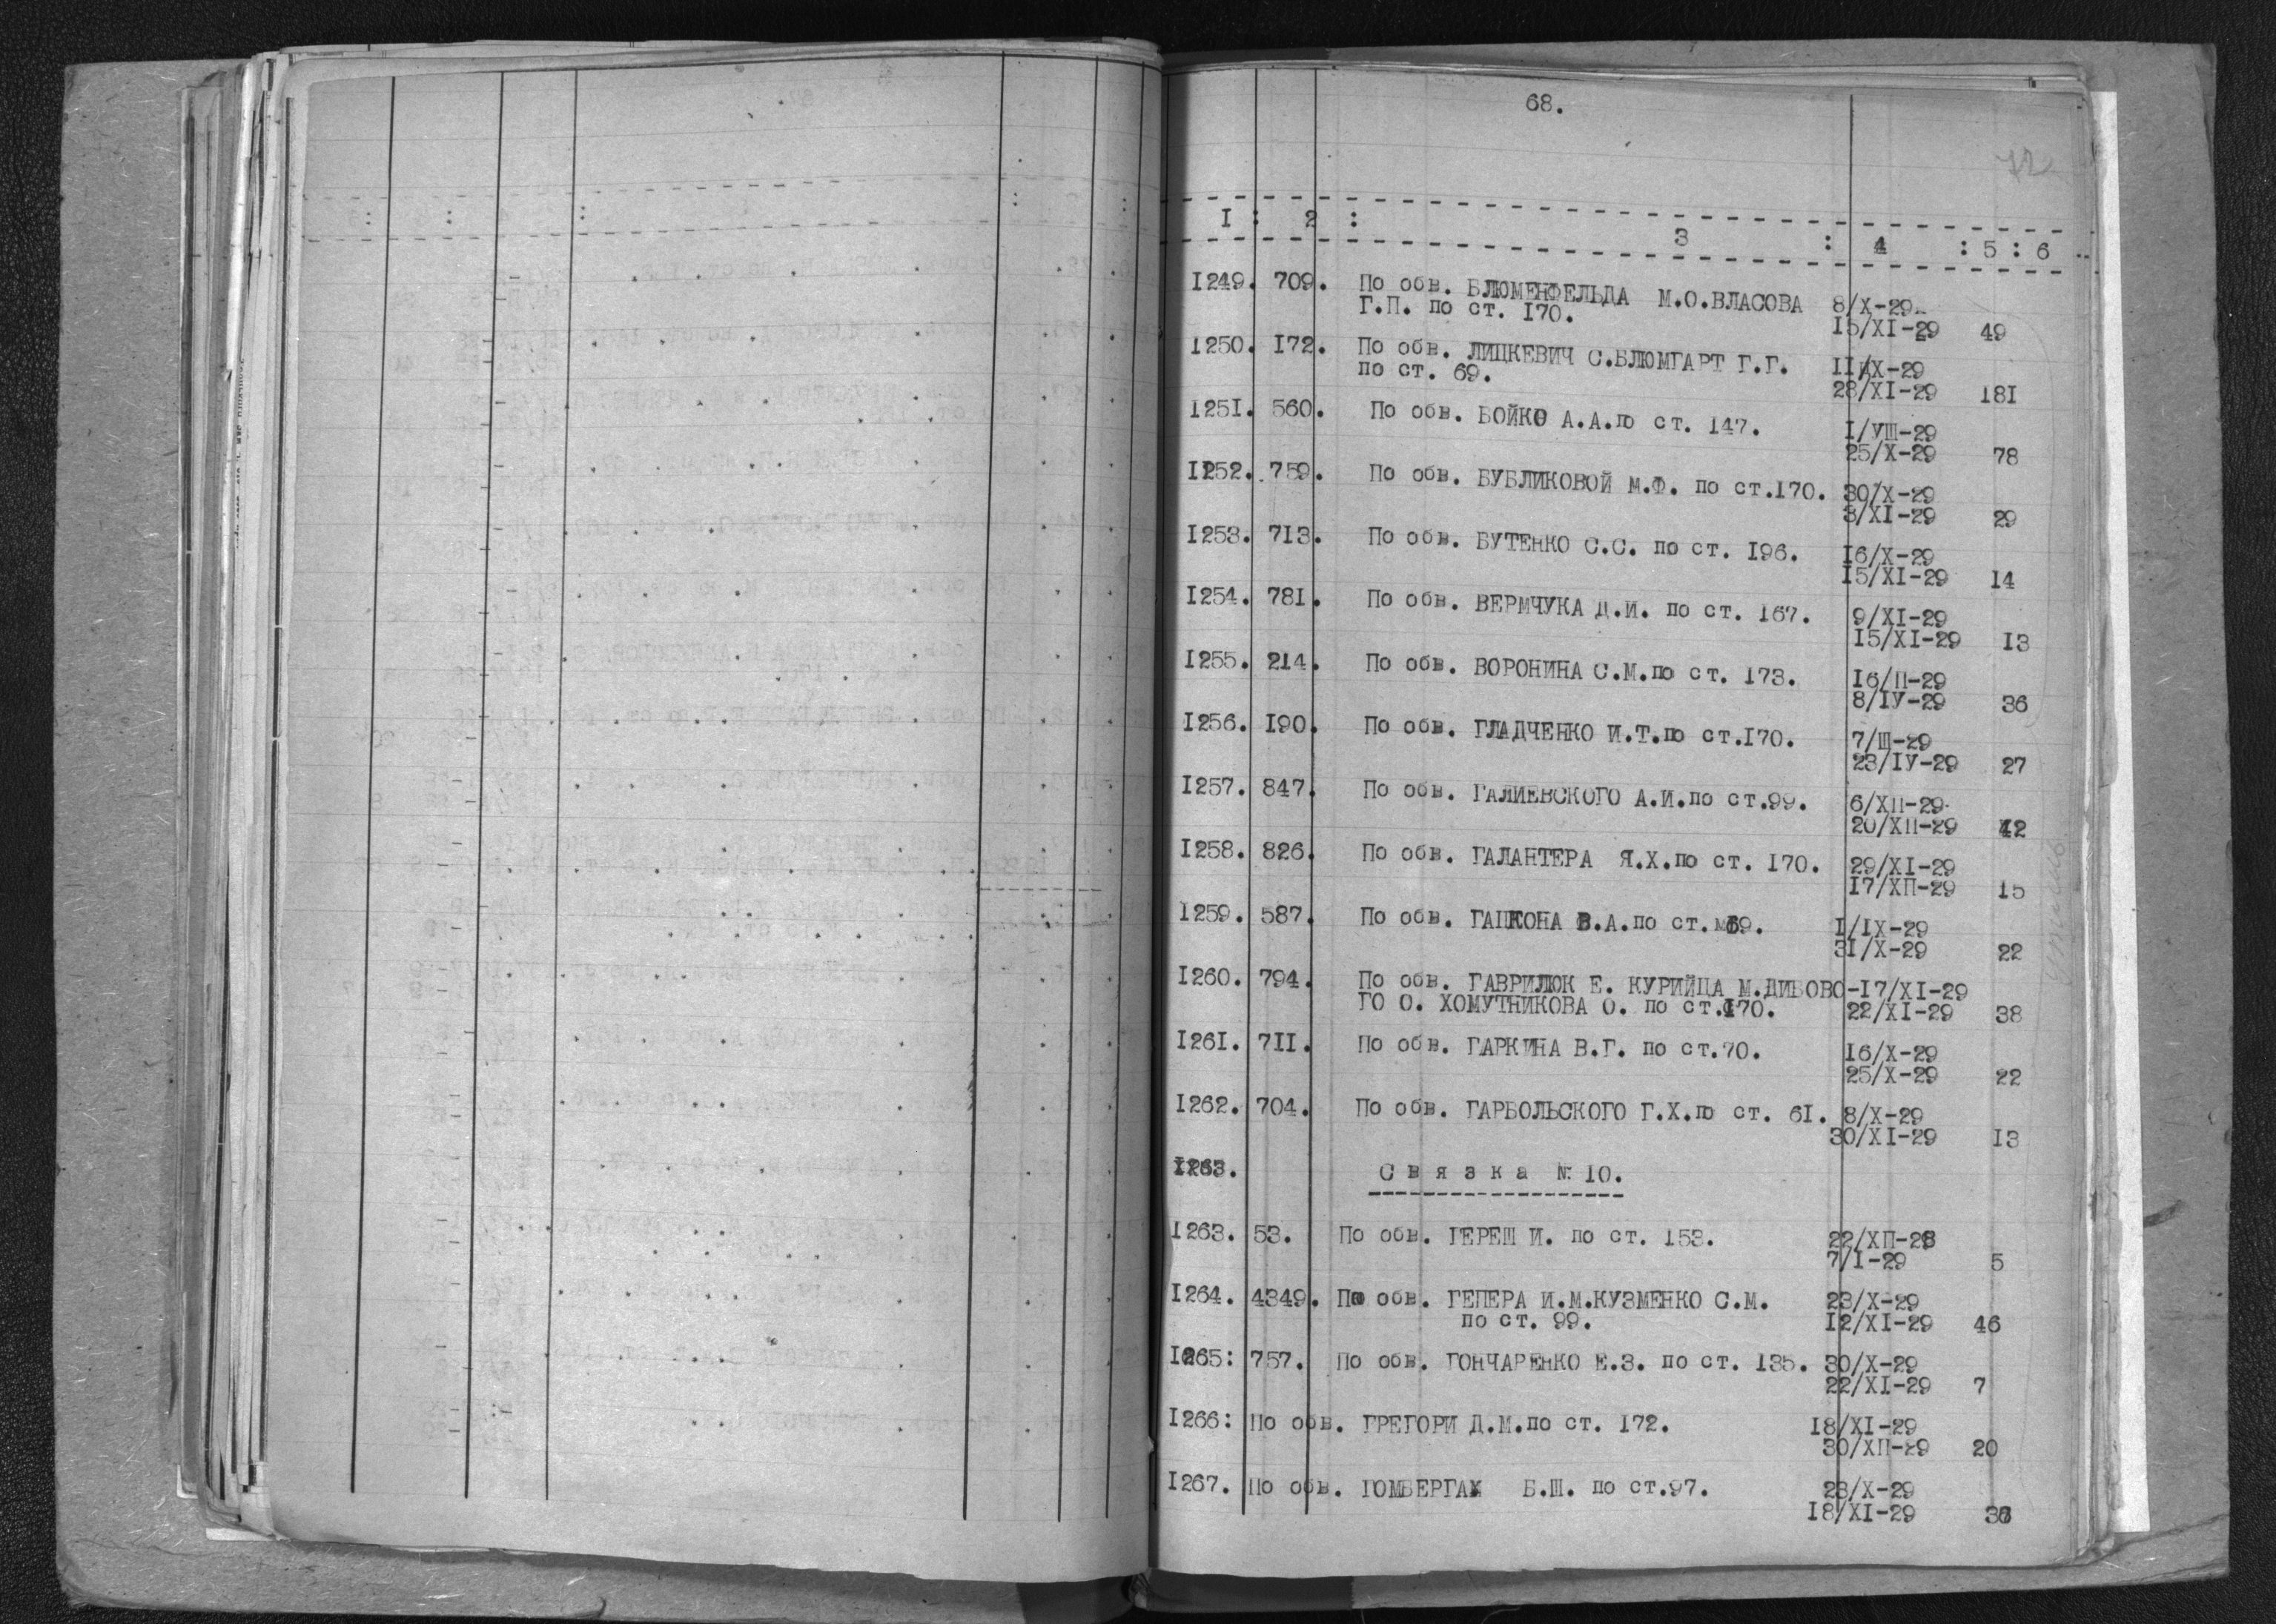 68.
72
I : 2 : 3 : 4 : 5 : 6
I249. 709. По обв. БЛЮМЕНФЕЛЬДА М.О.ВЛАСОВА 8/X-29
Г.П. по ст. I70. I5/XI-29 49
I250. I72. По обв. ЛИЦКЕВИЧ С.БЛЮМГАРТ Г.Г. II/IX-29
по ст. 69. 28/XI-29 I8I
I25I. 560. По обв. БОЙКО А.А.по ст. I47. I/УШ-29
25/X-29 78
I252. 759. По обв. БУБЛИКОВОЙ М.Ф. по ст.I70. 30/X-29
3/XI-29 29
I253. 7I3. По обв. БУТЕНКО С.С. по ст. I96. I6/X-29
I5/XI-29 I4
I254. 78I. По обв. ВЕРМЧУКА Д.И. по ст. I67. 9/XI-29
I5/XI-29 I3
I255. 2I4. По обв. ВОРОНИНА С.М.по ст. I73. I6/П-29
8/IУ-29 36
I256. I90. По обв. ГЛАДЧЕНКО И.Т.по ст.I70. 7/Ш-29
23/IУ-29 27
I257. 847. По обв. ГАЛИЕВСКОГО А.И.по ст.99. 6/XП-29
20/XП-29 42
I258. 826. По обв. ГАЛАНТЕРА Я.Х.по ст. I70. 29/XI-29
I7/XП-29 I5
I259. 587. По обв. В.А.по ст. I/IX-29
3I/X-29 22
I260. 794. По обв. ГАВРИЛЮК Е. КУРИЙЦА М.ДИБОВО-I7/XI-29
ГО О. ХОМУТНИКОВА О. по ст.I70. 22/XI-29 38
I26I. 7II. По обв. ГАРКИНА В.Г. по ст.70. I6/X-29
25/X-29 22
I262. 704. По обв. ГАРБОЛЬСКОГО Г.Х.по ст. 6I. 8/X-29
30/XI-29 I3
I263. С в я з к а № I0.
I263. 53. По обв. ГЕРЕШ И. по ст. I53. 22/XП-28
7/I-29 5
I264. 4349. По обв. ГЕПЕРА И.М.КУЗМЕНКО С.М. 23/X-29
по ст. 99. I2/XI-29 46
I265: 757. По обв. ГОНЧАРЕНКО Е.З. по ст. I35. 30/X-29
22/XI-29 7
I266: По обв. ГРЕГОРИ Д.М.по ст. I72. I8/XI-29
30/XП-29 20
I267. По обв. ГОМБЕРГА Б.Ш. по ст.97. 23/X-29
I8/XI-29